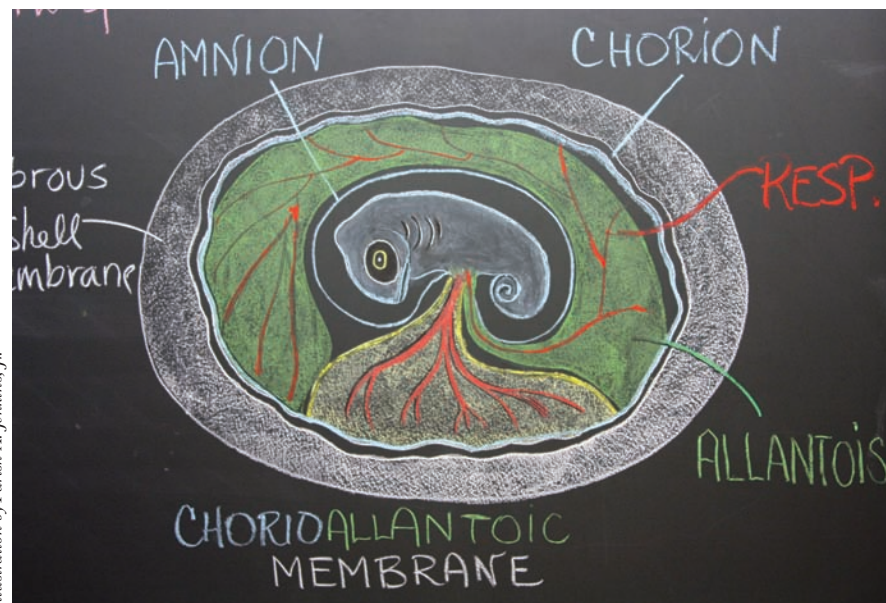 AMNION
CHORION
brous
shell
mbrane
RESP.
ALLANTOIS
CHORIOALLANTOIC
MEMBRANE